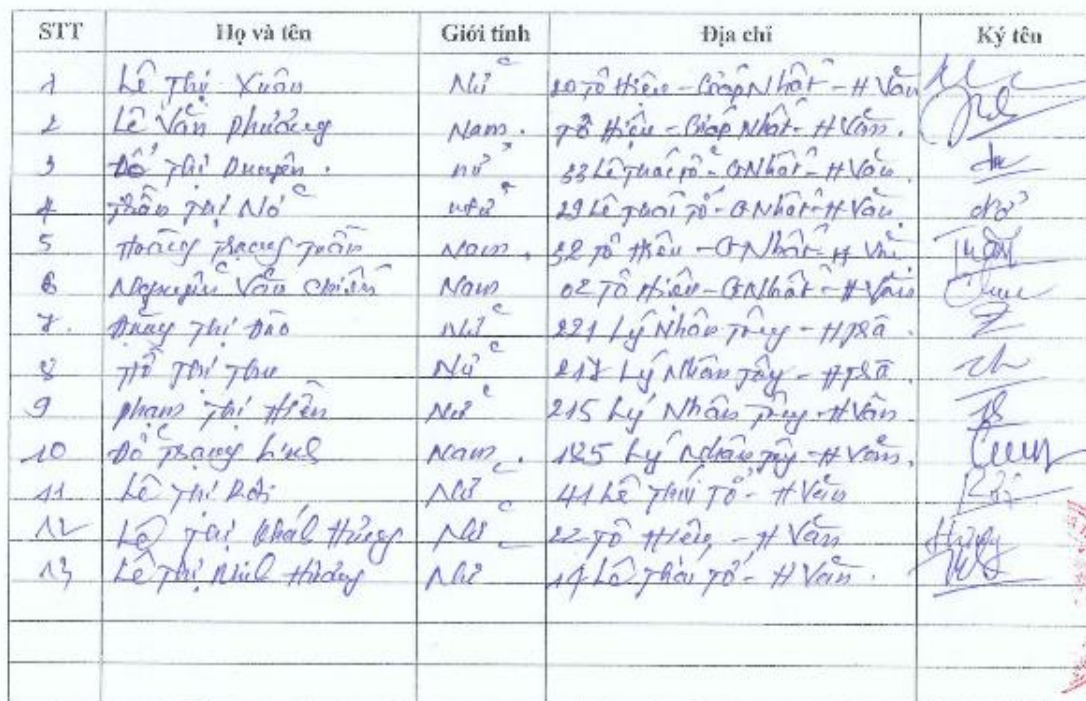 STT Họ và tên Giới tính Địa chỉ Ký tên
1 Lê Thị Xuân Nữ 20 Tô Hiệu - Giáp Nhất - H Văn
2 Lê Văn Phương Nam. Tô Hiệu - Giáp Nhất - H Văn.
3 Đỗ Thị Duyên. nữ 33 Lê Thái Tổ - G Nhất - H Văn.
4 Trần Thị Nở nữ 29 Lê Thái Tổ - G Nhất - H Văn nở
5 Hoàng Trọng Tuấn Nam. 32 Tô Hiệu - G Nhất - H Văn Tuấn
6 Nguyễn Văn Chiến Nam 02 Tô Hiệu - G Nhất - H Văn
7. Đặng Thị Đào Nữ 221 Lý Nhân Tông -
8 Thị Thu Nữ 217 Lý Nhân Tông -
9 Phạm Thị Hiền Nữ 215 Lý Nhân Tông - H Văn.
10 Đỗ Trọng Nam. 185 Lý Nhân Tông - H Văn.
11 Lê Thị Rồi Nữ 41 Lê Thái Tổ - H Văn Rồi
12 Lê Thị Hưng Nữ 22 Tô Hiệu, - H Văn
13 Lê Thị Hương Nữ 14 Lê Thái Tổ - H Văn.